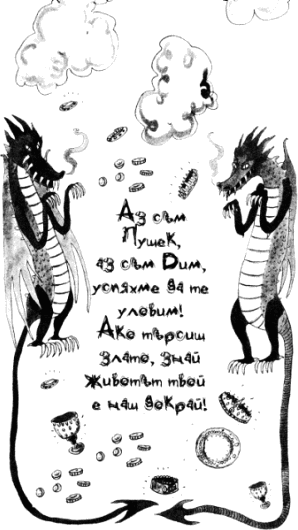 Аз съм
Пушек,
аз съм Дим,
успяхме да те
уловим!
Ако търсиш
злато, знай
животът твой
е наш докрай!